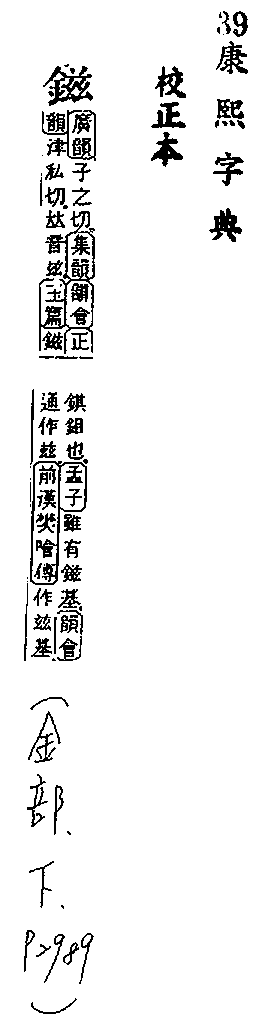 39康熙字典
校正本
鎡
廣韻子之切集韻韻會正
韻津私切𠀤音兹玉篇鎡
錤鉏也孟子雖有鎡基韻會
通作兹前漢樊噲傳作兹基
(金部、下、P2989)